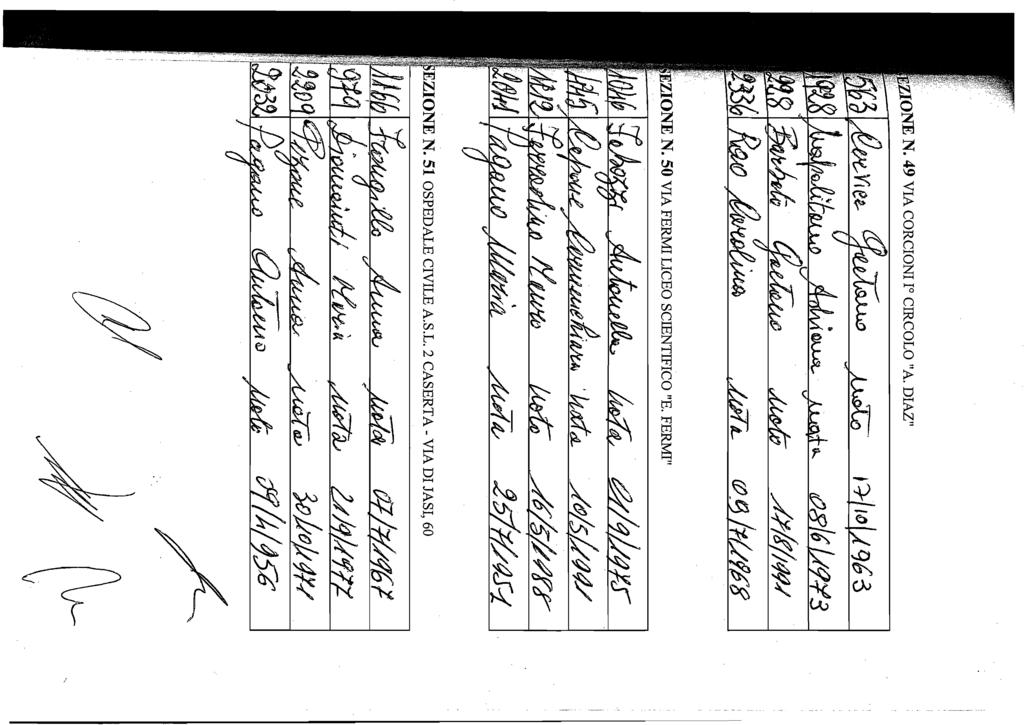 SEZIONE N. 49 VIA CORCIONI I° CIRCOLO "A. DIAZ"
563 Gaetano nato 17/10/1963
1928 Napolitano Adriana nata 08/6/1973
998 Barbato Gaetano nato 17/8/1991
2336 Rao Carolina nata 09/7/1968
SEZIONE N. 50 VIA FERMI LICEO SCIENTIFICO "E. FERMI"
1016 Antonella nata 21/9/1975
1715 nata 10/5/1991
1212 Ferrandino nato 16/5/1988
2011 Pagano Maria nata 25/7/1951
SEZIONE N. 51 OSPEDALE CIVILE A.S.L. 2 CASERTA - VIA DI JASI, 60
1166 Anna nata 07/7/1967
979 Maria nata 21/9/1977
2209 Anna nata 30/10/1971
2032 Pagano Antonio nato 09/11/956